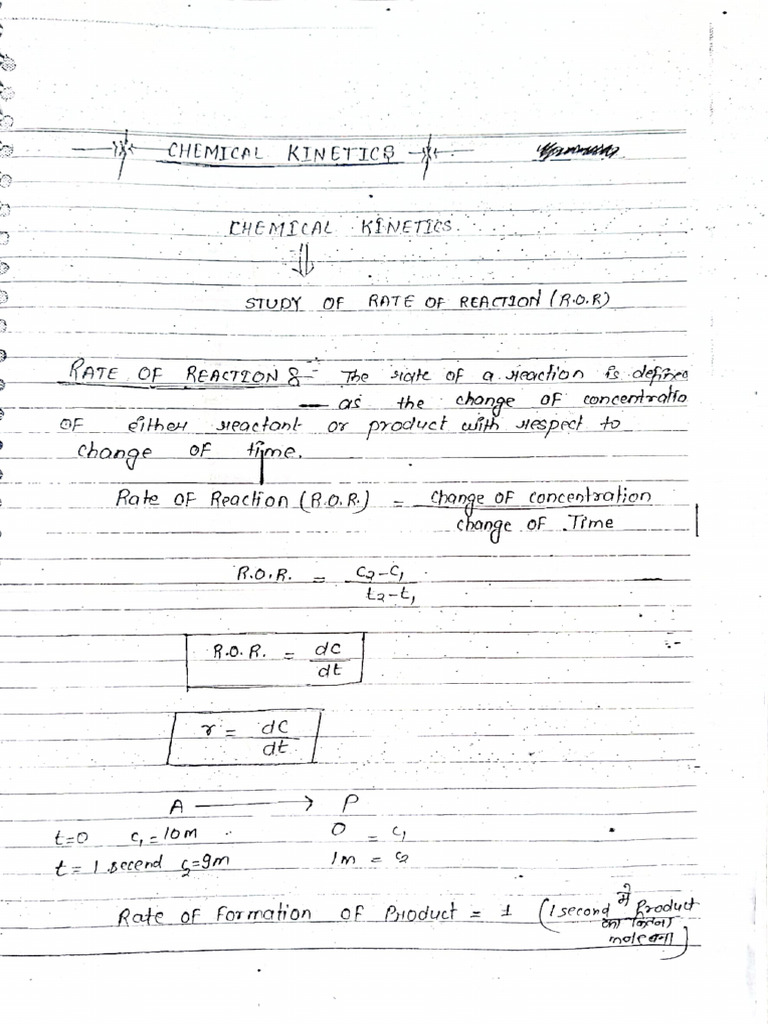 CHEMICAL KINETICS
CHEMICAL KINETICS
⇓
STUDY OF RATE OF REACTION (R.O.R)
RATE OF REACTION :- The rate of a reaction is defined
as the change of concentratio
OF either reactant or product with respect to
change OF time.
Rate of Reaction (R.O.R.) = change of concentration
change of Time
R.O.R. = c₂-c₁
t₂-t₁
R.O.R. = dc
dt
r = dc
dt
A ⟶ P
t=0 c₁=10m 0 = c₁
t = 1 second c₂=9m 1m = c₂
Rate of Formation of Product = 1 (1 second में Product
का कितना
mole बना)